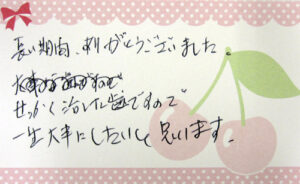 長い期間、ありがとうございました
せっかく治した歯ですので
一生大事にしたいと思います。